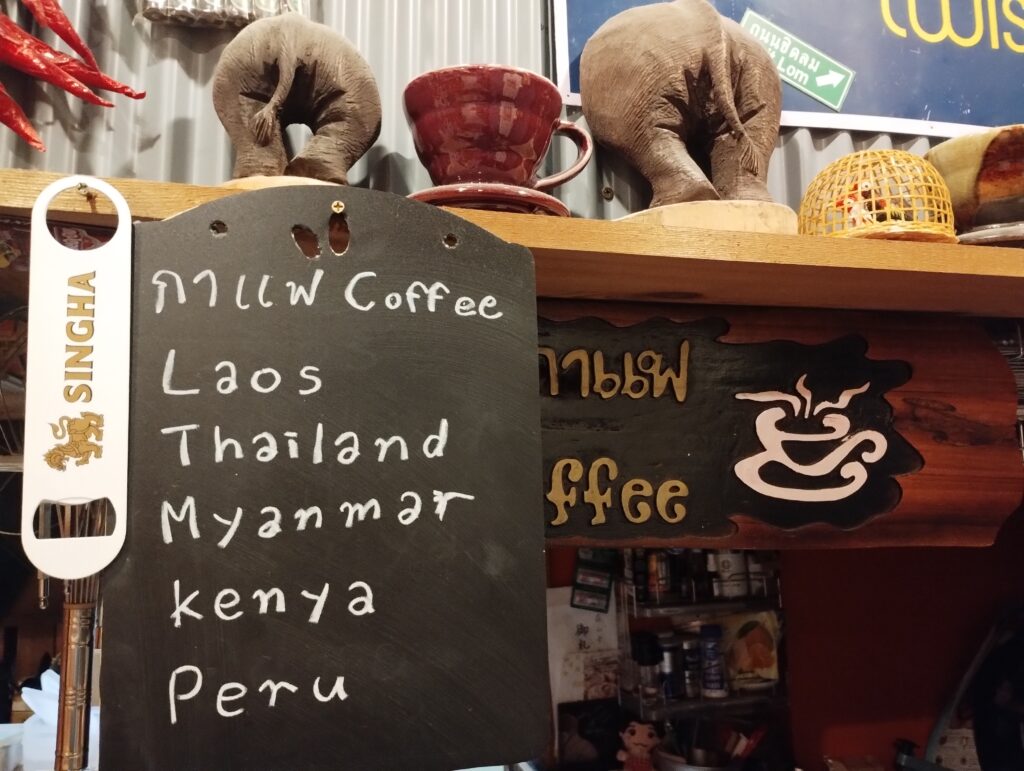 ถนนชิดลม
Lom
SINGHA
กาแฟ Coffee
Laos
Thailand
Myanmar
kenya
Peru
กาแฟ
ffee